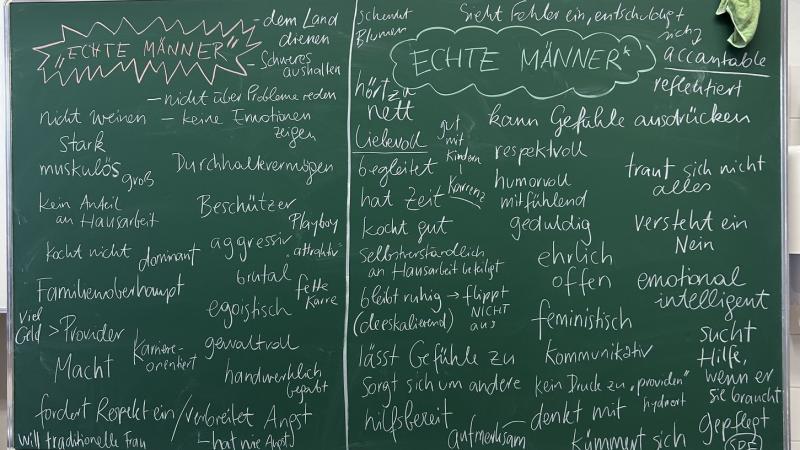 "ECHTE MÄNNER"
- dem Land
dienen
- Schweres
aushalten
- nicht über Probleme reden
nicht weinen - keine Emotionen
zeigen
stark
muskulös
groß
Durchhaltevermögen
kein Anteil
an Hausarbeit
Beschützer
Playboy
"attraktiv"
kocht nicht
dominant
aggressiv
brutal
fette
Karre
Familienoberhaupt
egoistisch
viel
Geld > Provider
Karriere-
orientiert
gewaltvoll
Macht
handwerklich
begabt
fordert Respekt ein / verbreitet Angst
will traditionelle Frau
hat nie Angst
schenkt
Blumen
Sieht Fehler ein, entschuldigt
sich
ECHTE MÄNNER*
accountable
reflektiert
hört zu
nett
kann Gefühle ausdrücken
liebevoll
gut
mit
Kindern
respektvoll
begleitet
traut sich nicht
alles
humorvoll
mitfühlend
hat Zeit
kocht gut
geduldig
versteht ein
Nein
selbstverständlich
an Hausarbeit beteiligt
ehrlich
offen
emotional
intelligent
bleibt ruhig → flippt
NICHT
aus
(deeskalierend)
feministisch
sucht
Hilfe,
wenn er
sie braucht
lässt Gefühle zu
kommunikativ
sorgt sich um andere
kein Druck zu "providen"
hilfsbereit
denkt mit
aufmerksam
kümmert sich
gepflegt